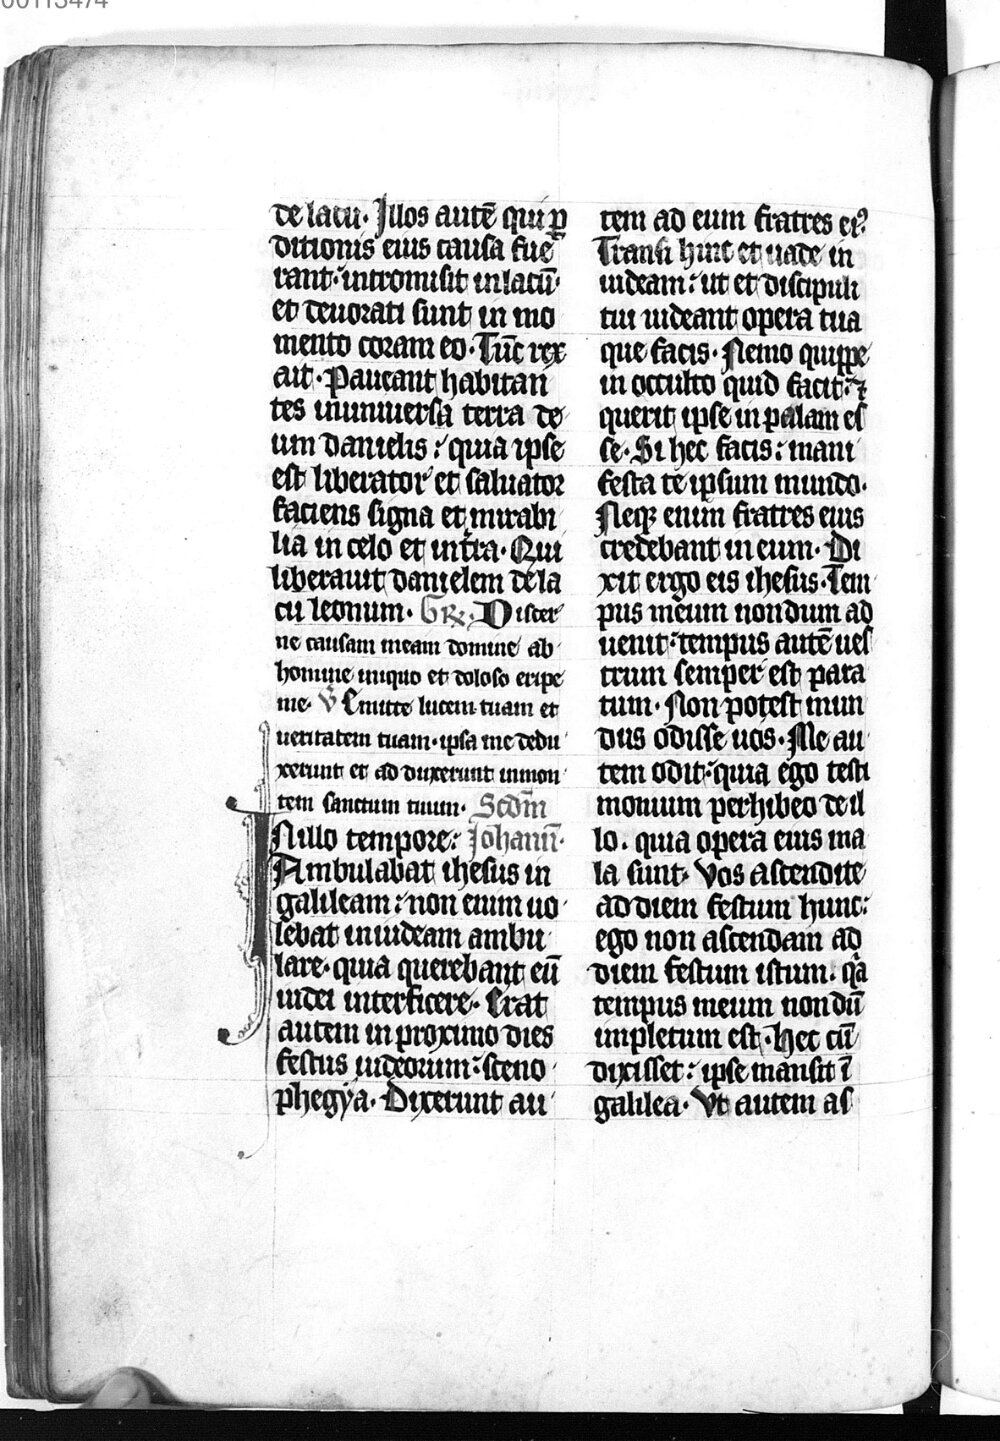 00113474
de lacu. Illos autē qui ꝑ
ditionis eius causa fue
rant: intromisit in lacū.
et deuorati sunt in mo
mento coram eo. Tūc rex
ait. Paueant habitan
tes in uniuersa terra de
um danielis: quia ipse
est liberator et saluator
faciens signa et mirabi
lia in celo et in t̄ra. Qui
liberauit danielem de la
cu leonum. GR. Discer
ne causam meam domine ab
homine iniquo et doloso eripe
me. V Emitte lucem tuam et
ueritatem tuam. ipsa me dedu
xerunt et ad duxerunt in mon
tem sanctum tuum. Scdm̄
IN illo tempore: Johann̄.
Ambulabat ihesus in
galileam: non enim uo
lebat in iudeam ambu
lare. quia querebant eū
iudei interficere. Erat
autem in proximo dies
festus iudeorum: sceno
phegya. Dixerunt au
tem ad eum fratres eiꝰ
Transi hinc et uade in
iudeam: ut et discipuli
tui uideant opera tua
que facis. Nemo quippe
in occulto quid facit: ⁊
querit ipse in palam es
se. Si hec facis: mani
festa te ipsum mundo.
Neqꝫ enim fratres eius
credebant in eum. Di
xit ergo eis ihesus. Tem
pus meum nondum ad
uenit: tempus autē ues
trum semper est para
tum. Non potest mun
dus odisse uos. Me au
tem odit: quia ego testi
monium perhibeo de il
lo. quia opera eius ma
la sunt. Vos ascendite
ad diem festum hunc:
ego non ascendam ad
diem festum istum. qͣa
tempus meum nondū
impletum est. Hec cū
dixisset: ipse mansit ī
galilea. Vt autem as